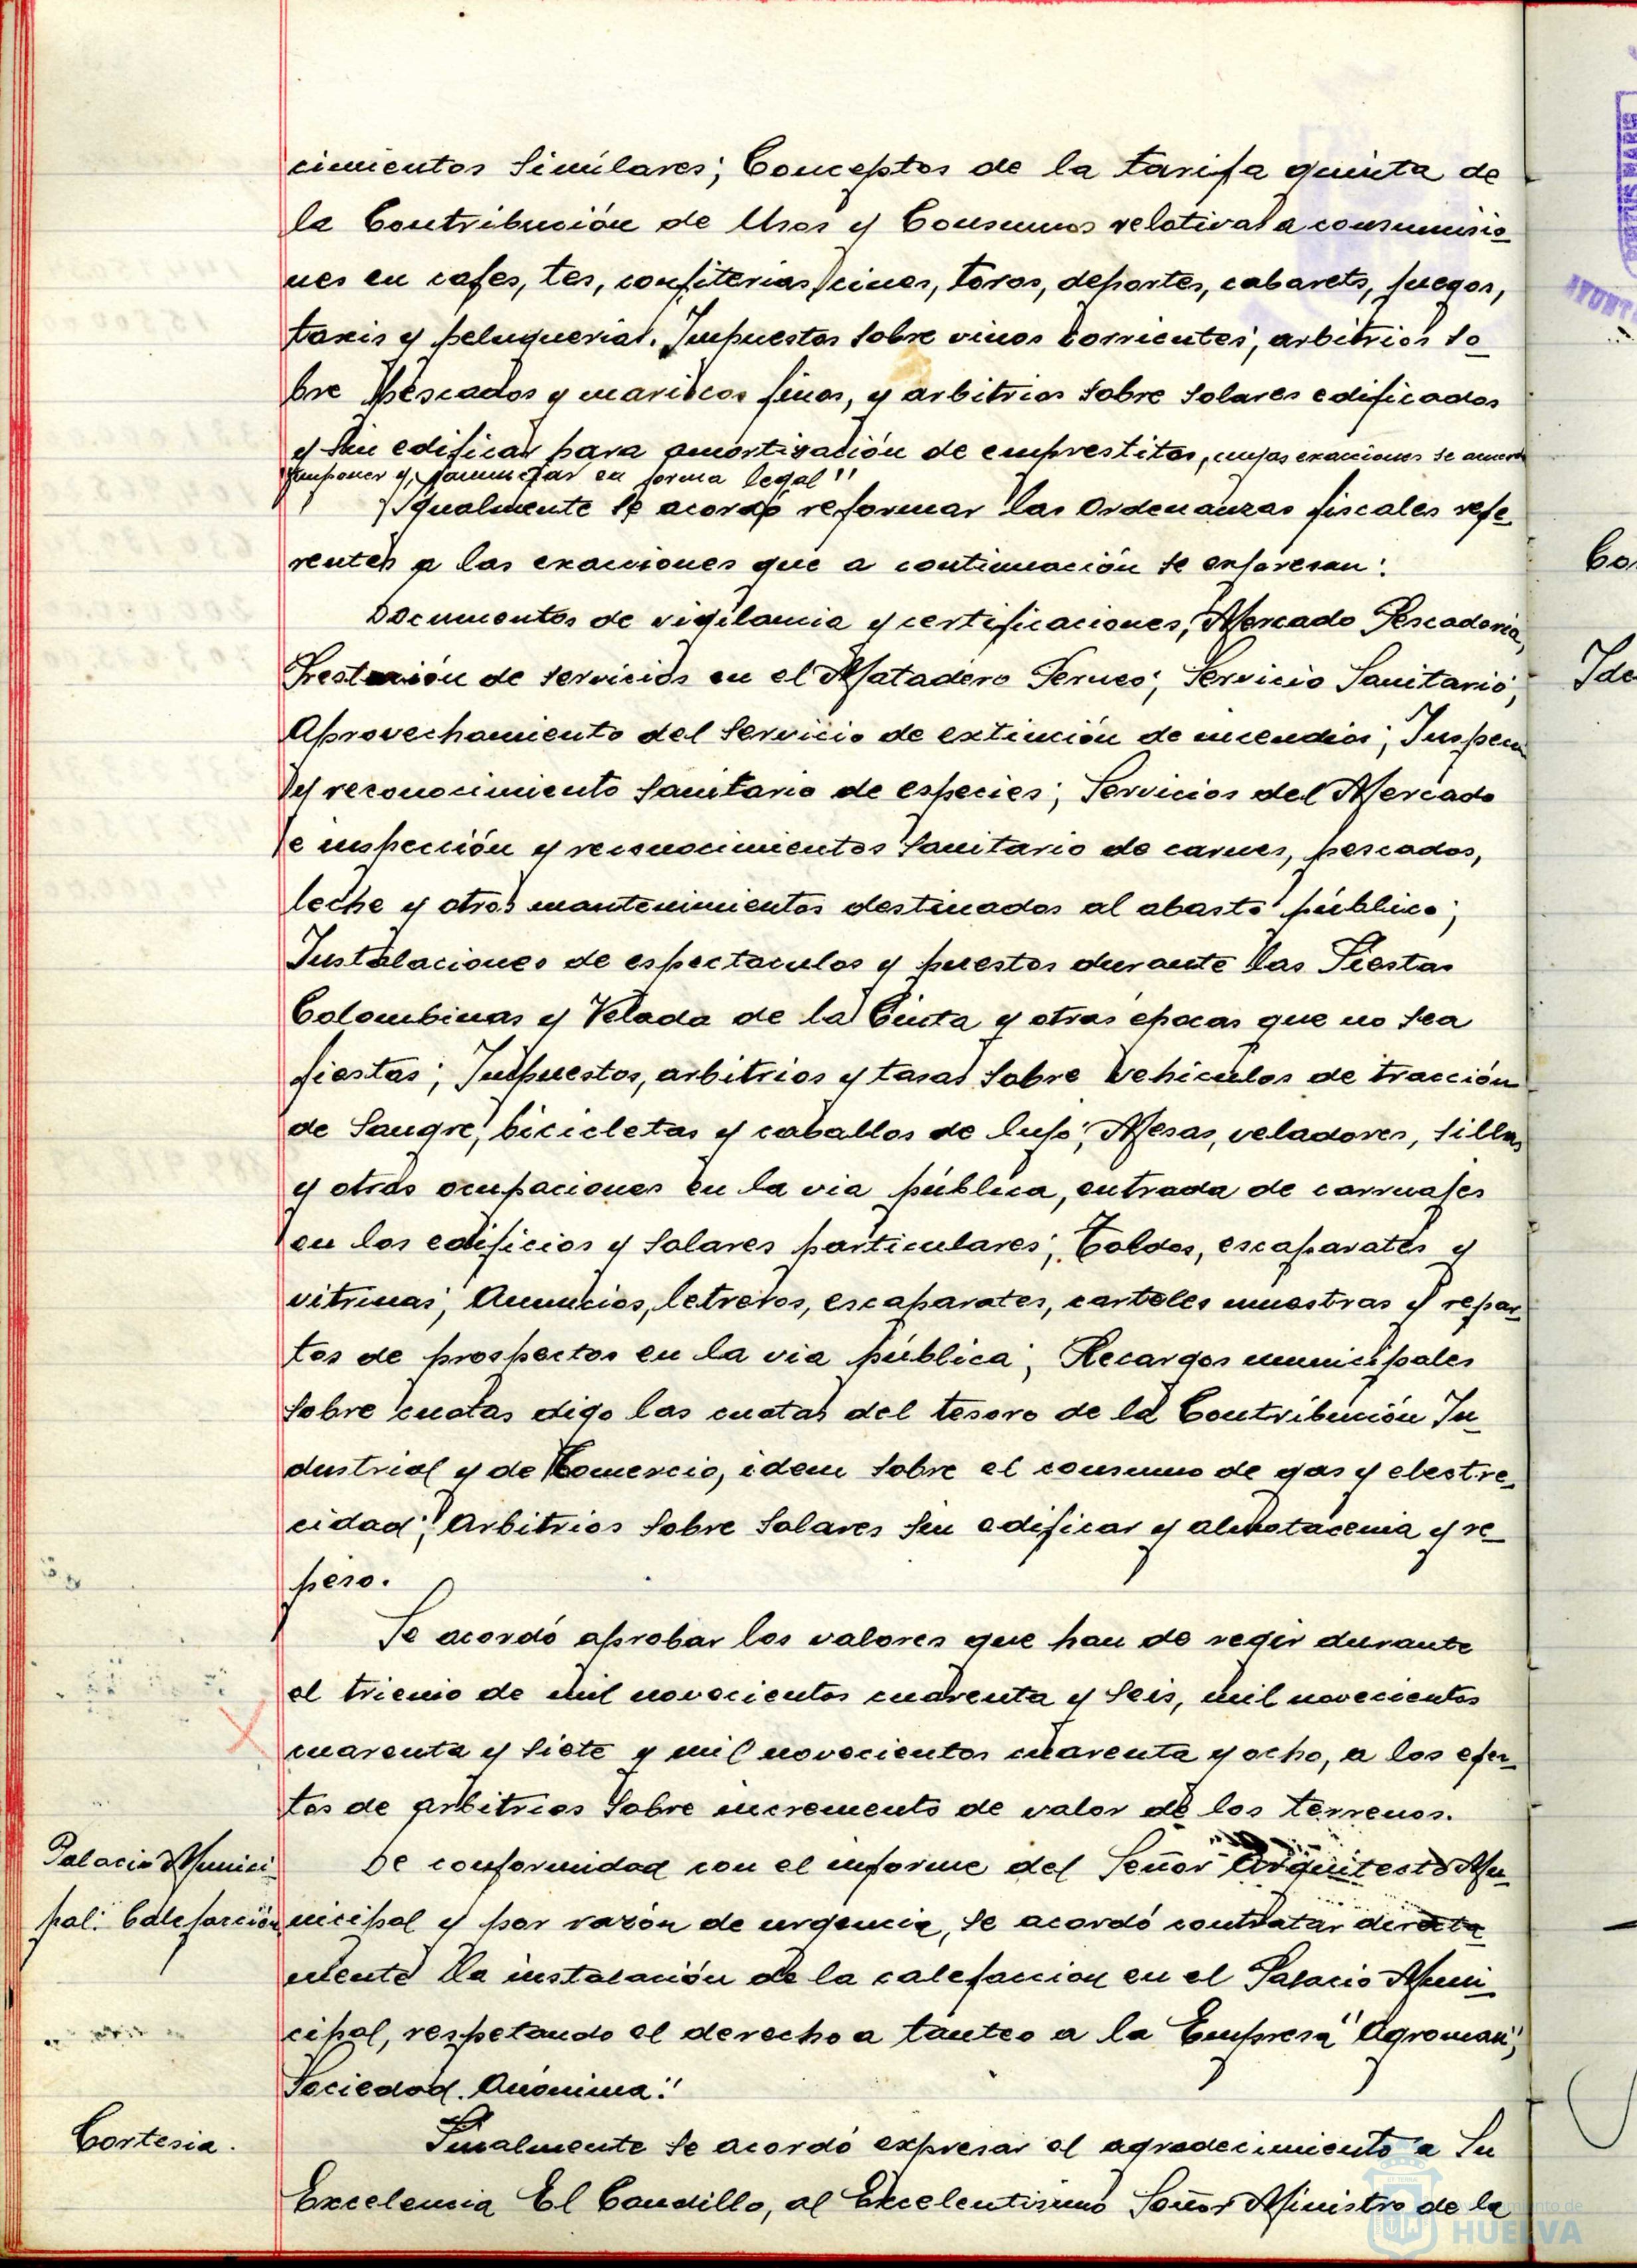 cimientos similares; Conceptos de la tarifa quinta de
la Contribución de Usos y Consumos relativas a consumisio
nes en cafes, tes, confiterias, cines, toros, deportes, cabarets, juegos,
taxis y peluquerias. Impuestos sobre vinos corrientes; arbitrios so
bre pescados y mariscos finos, y arbitrios sobre solares edificados
y sin edificar para amortización de emprestitos, cuyas exacciones se acuerda
imponer y, en forma legal"
Igualmente se acordó reformar las Ordenanzas fiscales refe
rentes a las exacciones que a continuación se expresan:
Documentos de vigilancia y certificaciones; Mercado Pescaderia,
Prestación de servicios en el Matadero Perneo; Servicio Sanitario;
Aprovechamiento del servicio de extinción de incendios; Inspecn
y reconocimiento sanitario de especies; Servicios del Mercado
e inspección y reconocimientos sanitario de carnes, pescados,
leche y otros mantenimientos destinados al abasto público;
Instalaciones de espectaculos y puestos durante las Fiestas
Colombinas y Velada de la Cinta y otras épocas que no sea
fiestas; Impuestos, arbitrios y tasas sobre vehiculos de tracción
de sangre, bicicletas y caballos de lujo; Mesas, veladores, sillas
y otras ocupaciones en la via pública, entrada de carruajes
en los edificios y solares particulares; Toldos, escaparates y
vitrinas; Anuncios, letreros, escaparates, carteles muestras y repar
tos de prospectos en la via pública; Recargos municipales
sobre cuotas digo las cuotas del tesoro de la Contribución In
dustrial y de Comercio, idem sobre el consumo de gas y electre
cidad; Arbitrios sobre solares sin edificar y almotacenia y re
peso.
Se acordó aprobar los valores que han de regir durante
el trienio de mil novecientos cuarenta y seis, mil novecientos
cuarenta y siete y mil novecientos cuarenta y ocho, a los efec
tos de arbitrios sobre incremento de valor de los terrenos.
Palacio Munici
pal: Calefacción
De conformidad con el informe del Señor Arquitecto Mu
nicipal y por razón de urgencia, se acordó contratar directa
mente la instalación de la calefaccion en el Palacio Muni
cipal, respetando el derecho a tanteo a la Empresa "Agroman",
Sociedad Anónima."
Cortesia.
Finalmente se acordó expresar el agradecimiento a Su
Excelencia El Caudillo, al Excelentisimo Señor Ministro de la
Ayuntamiento de
HUELVA
Co
Ide